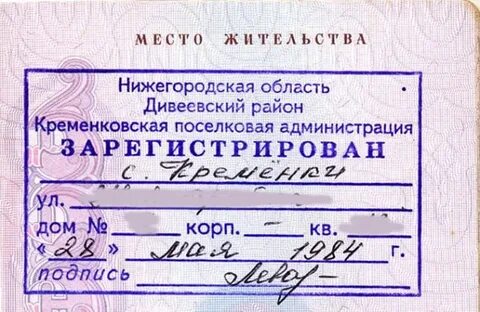 МЕСТО ЖИТЕЛЬСТВА
Нижегородская область
Дивеевский район
Кременковская поселковая администрация
ЗАРЕГИСТРИРОВАН
с. Кремёнки
ул.
дом № корп. – кв.
« 28 » мая 1984 г.
подпись